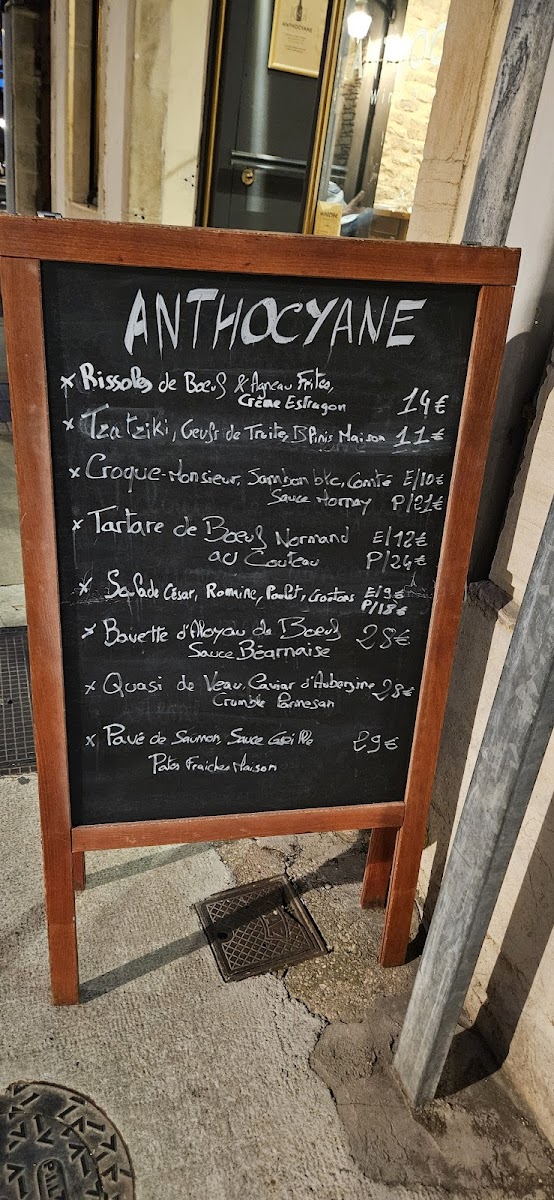 ANTHOCYANE
ANTHOCYANE
x Rissoles de Bœuf & Agneau Frites,
Crème Estragon 14€
x Tzatziki, Oeufs de Truite, Blinis Maison 11€
x Croque-Monsieur, Jambon blc, Comté E/10€
Sauce Mornay P/21€
x Tartare de Bœuf Normand E/12€
au Couteau P/24€
x Salade César, Romaine, Poulet, Croutons E/9€
P/18€
x Bavette d'Aloyau de Bœuf 28€
Sauce Béarnaise
x Quasi de Veau, Caviar d'Aubergine 28€
Crumble Parmesan
x Pavé de Saumon, Sauce 29€
Pates Fraiches Maison